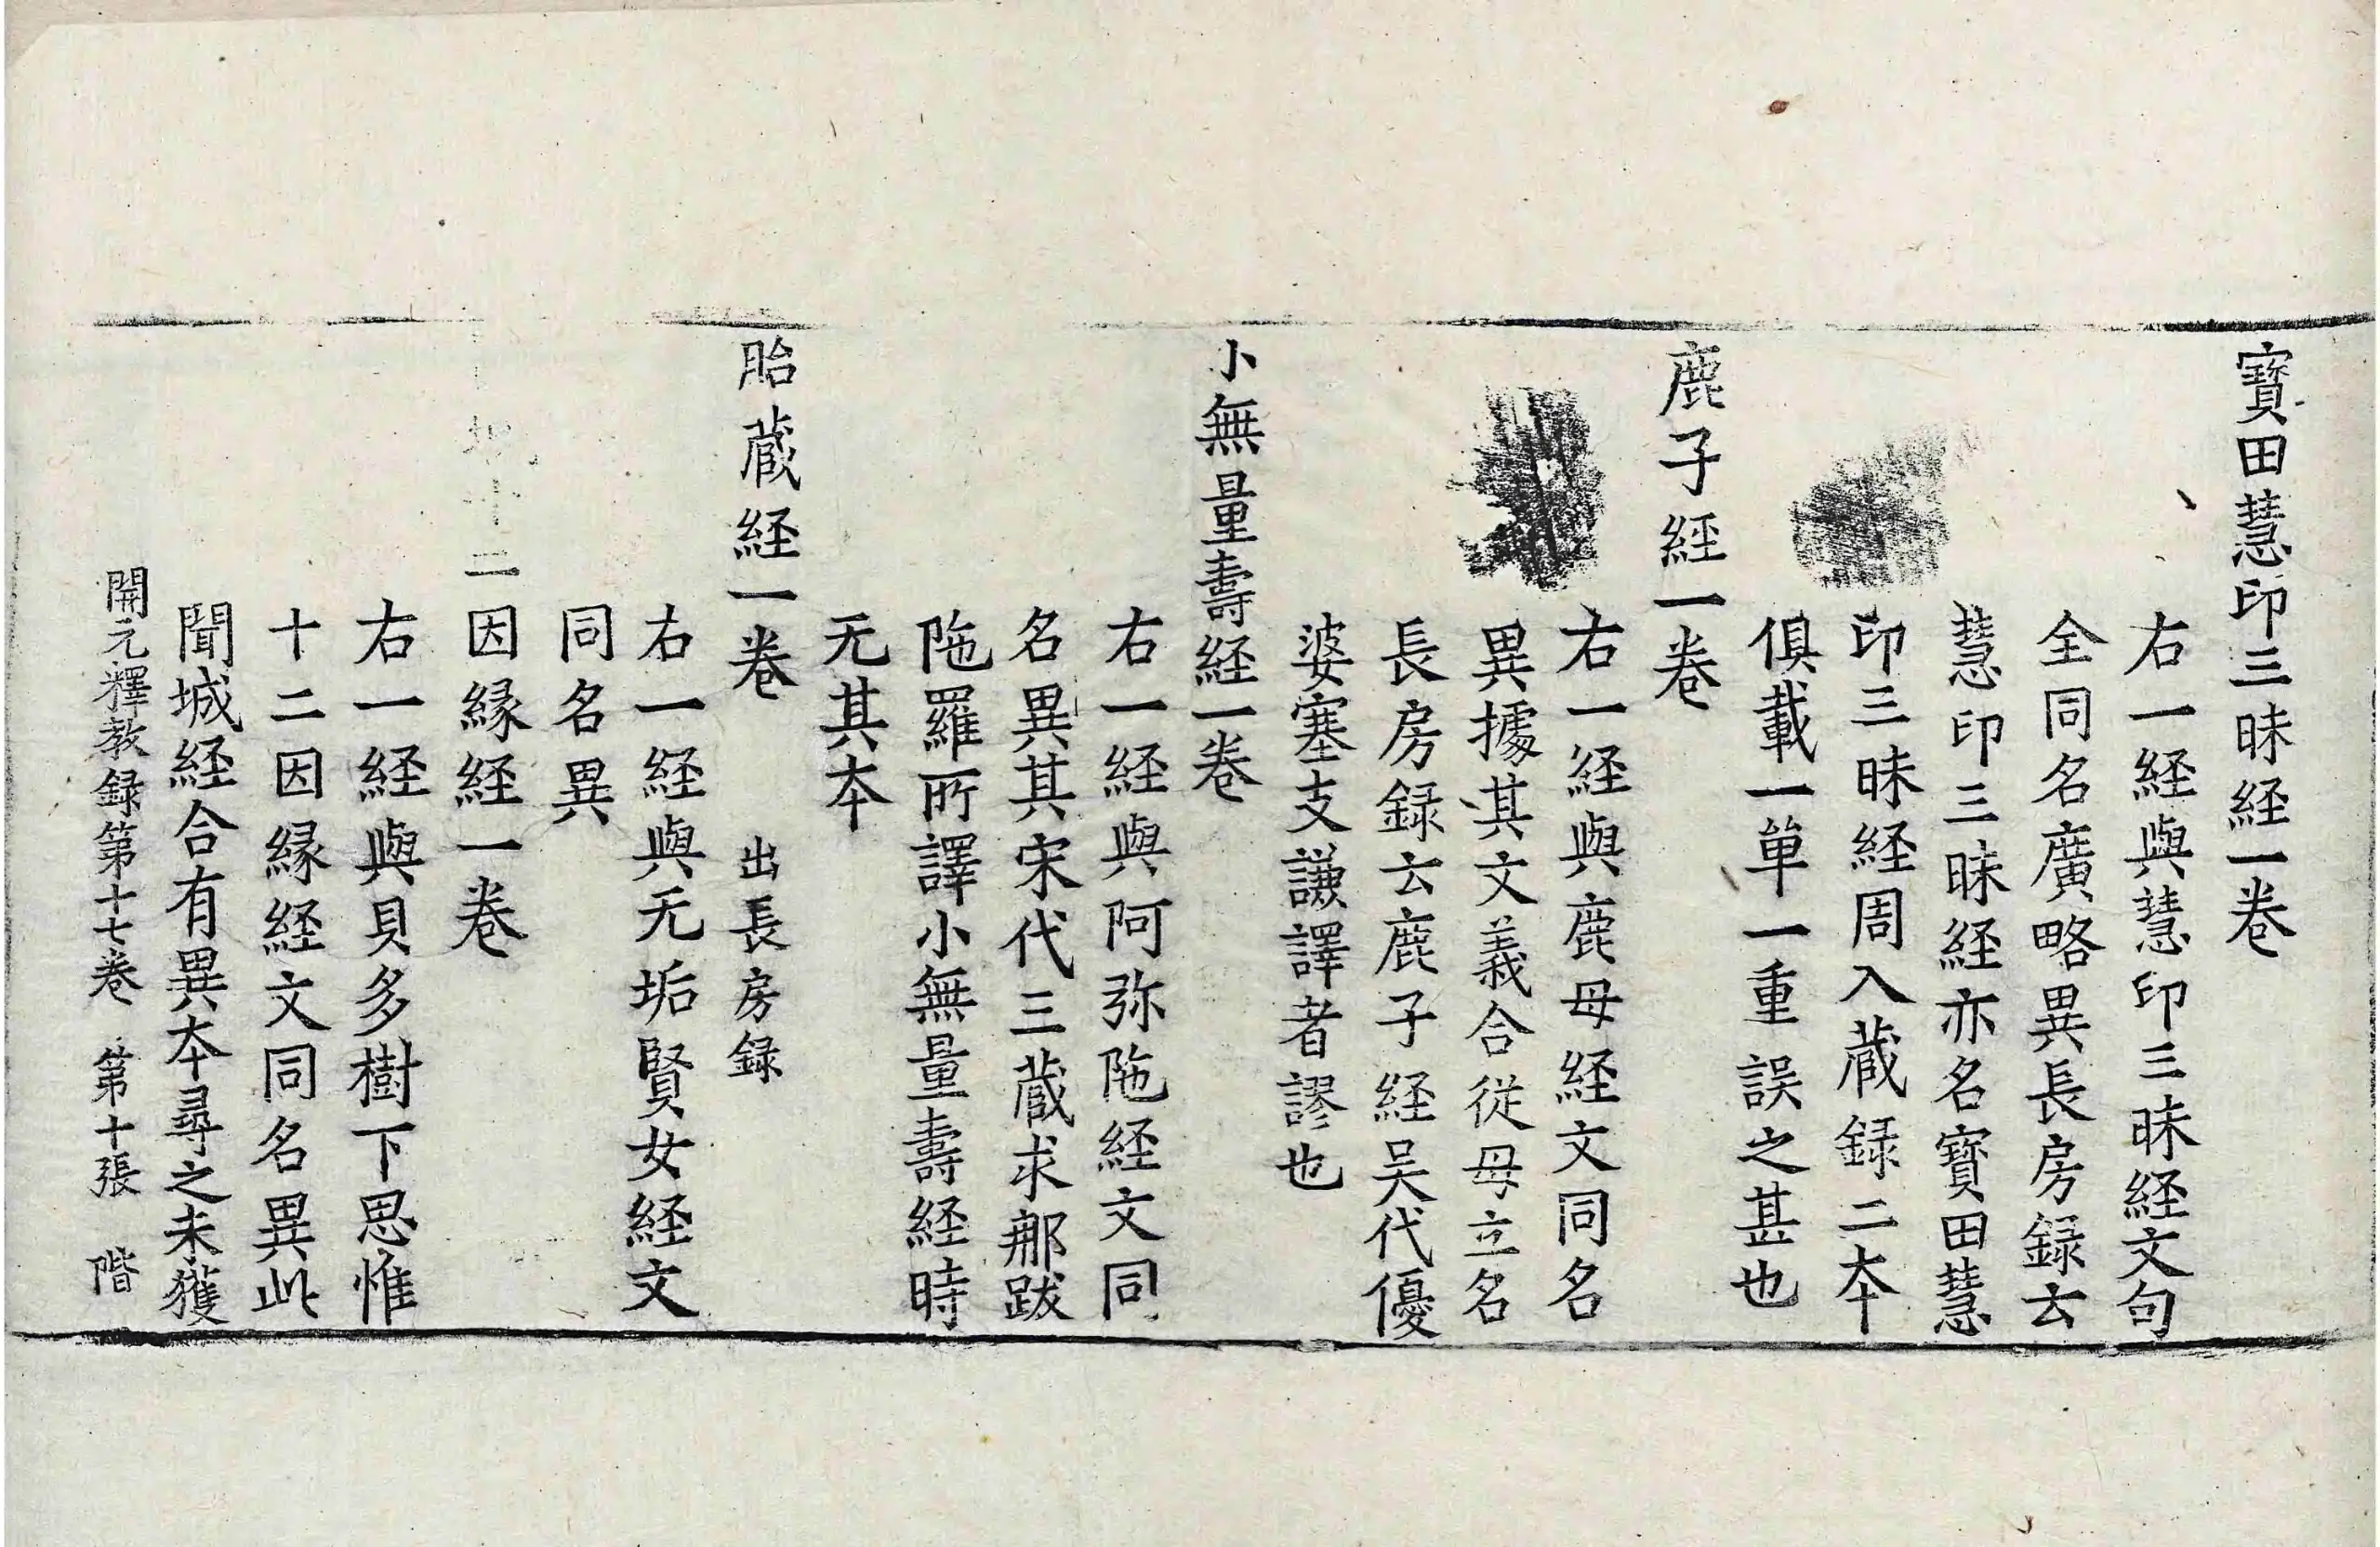 寳田慧印三昧経一卷
右一経與慧印三昧経文句
全同名廣略異長房録云
慧印三昧経亦名寳田慧
印三昧経周入蔵録二夲
俱載一單一重誤之甚也
鹿子經一卷
右一経與鹿母経文同名
異據其文義合從母立名
長房録云鹿子経吴代優
婆塞支謙譯者謬也
小無量壽経一卷
右一経與阿弥陁経文同
名異其宋代三蔵求那跋
陁羅所譯小無量壽経時
无其夲
胎蔵経一卷 出長房録
右一経與无垢賢女経文
同名異
城十二因縁経一卷
右一経與貝多樹下思惟
十二因縁経文同名異此
聞城経合有異夲尋之未獲
開元釋教録第十七卷 第十張 階